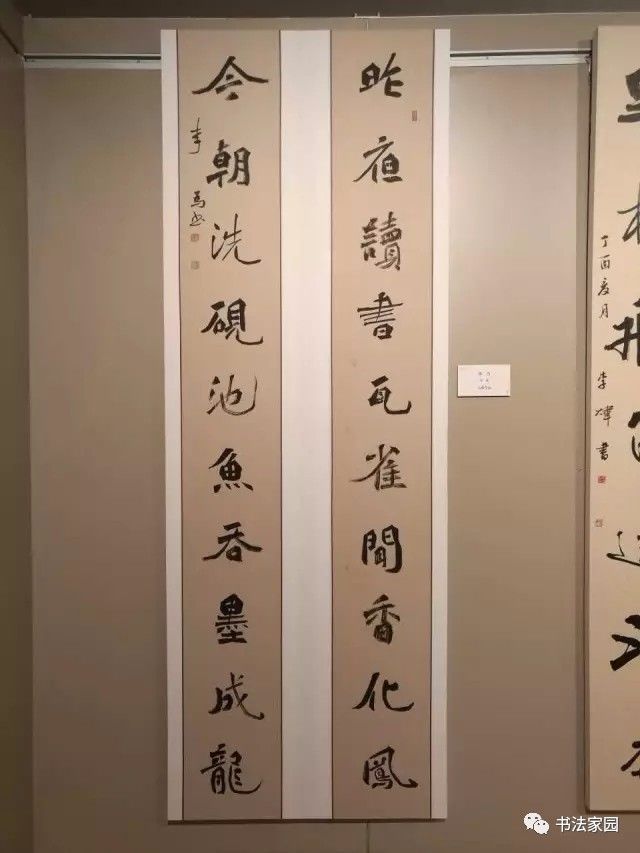 昨夜讀書瓦雀聞香化鳳
今朝洗硯池魚吞墨成龍
李馬書
丁酉夏月李煒書
书法家园